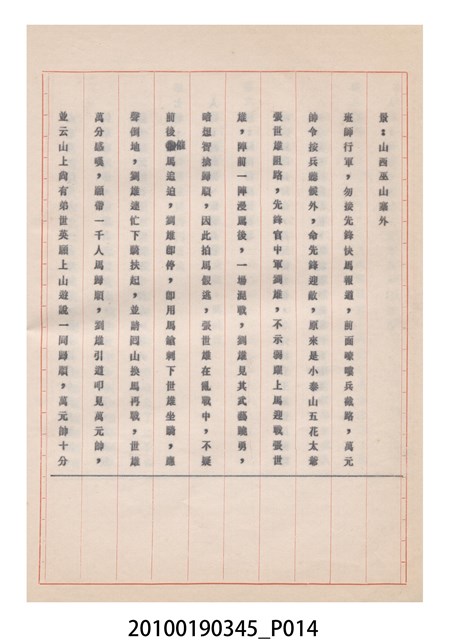 景：山西巫山塞外
班師行軍，勿接先鋒快馬報道，前面嘍囉兵截路，萬元
帥令按兵聽候外，命先鋒迎敵，原來是小泰山五花太爺
張世雄阻路，先鋒官中軍劉雄，不示弱躍上馬迎戰張世
雄，陣前一陣漫馬後，一場混戰，劉雄見其武藝驍勇，
暗想智擒歸順，因此拍馬假逃，張世雄在亂戰中，不疑
前後催馬追迫，劉雄即停，即用馬鎗刺下世雄坐騎，應
聲倒地，劉雄連忙下騎扶起，並請回山換馬再戰，世雄
萬分感嘆，願帶一千人馬歸順，劉雄引道叩見萬元帥，
並云山上尚有弟世英願上山遊說一同歸順，萬元帥十分
20100190345_P014